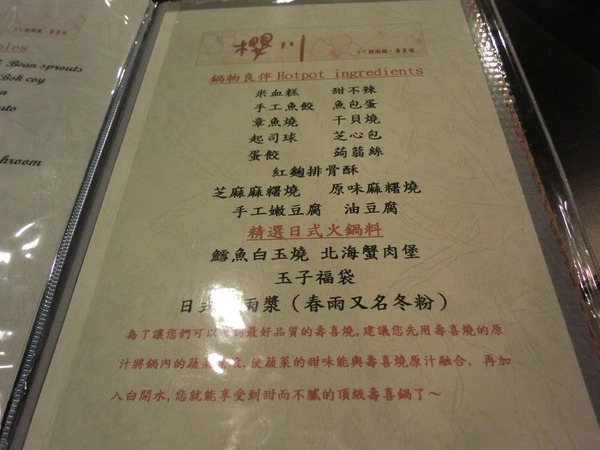 ies
Bean sprouts
Bok coy
hroom
櫻川
鍋物良伴 Hotpot ingredients
米血糕 甜不辣
手工魚餃 魚包蛋
章魚燒 干貝燒
起司球 芝心包
蛋餃 蒟蒻絲
紅麴排骨酥
芝麻麻糬燒 原味麻糬燒
手工嫩豆腐 油豆腐
精選日式火鍋料
鱈魚白玉燒 北海蟹肉堡
玉子福袋
日式 雨漿（春雨又名冬粉）
為了讓您們可以 到最好品質的壽喜燒,建議您先用壽喜燒的原
汁將鍋內的蔬菜 ,使蔬菜的甜味能與壽喜燒原汁融合，再加
入白開水,您就能享受到甜而不膩的頂級壽喜鍋了～